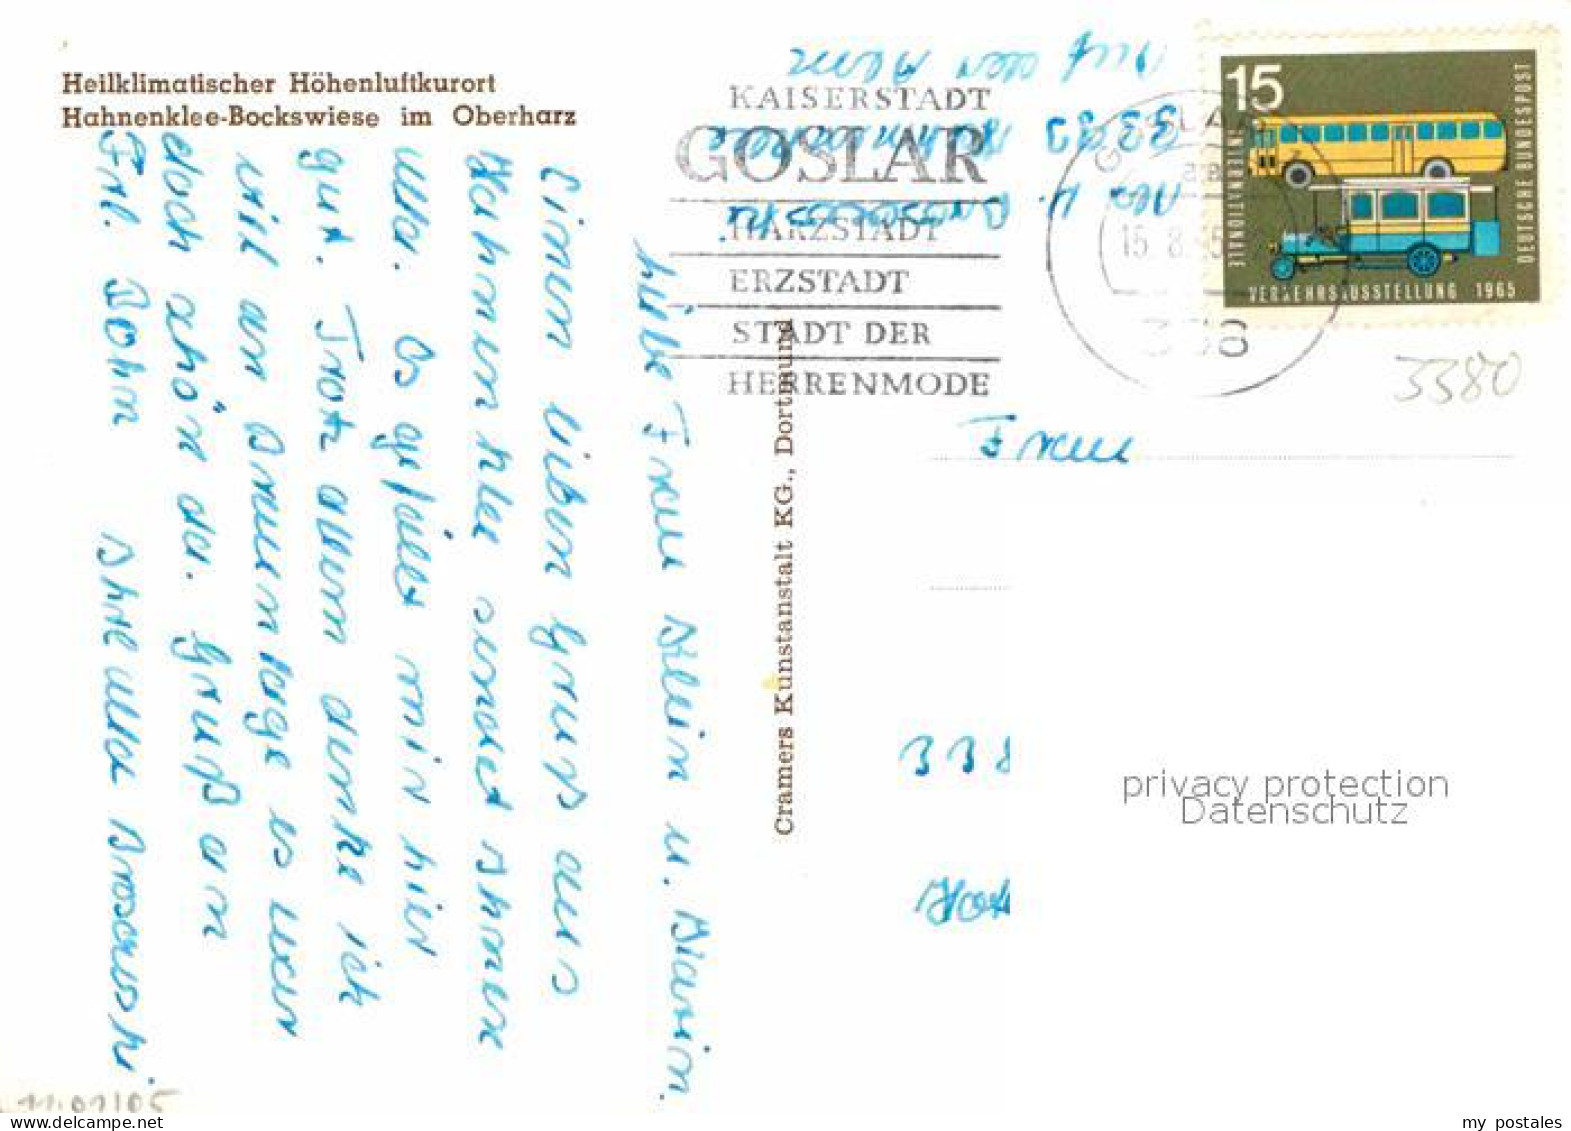 Heilklimatischer Höhenluftkurort
Hahnenklee-Bockswiese im Oberharz
liebe Frau Klein u. Marion.
Einen lieben Gruss aus
Hahnenklee sendet Ihnen
Ulla. Es gefällt mir hier
gut. Trotz allem danke ich
viel an Braunlage es war
doch schön da. Gruß an
Frl. Dohm Ihre Ulla
Cramers Kunstanstalt KG., Dortmund
KAISERSTADT
GOSLAR
HARZSTADT
ERZSTADT
STADT DER
HERRENMODE
GOSLAR
15. 8. 65
338
15
INTERNATIONALE
VERKEHRSAUSSTELLUNG 1965
DEUTSCHE BUNDESPOST
3380
Frau
338
privacy protection
Datenschutz
my_postales